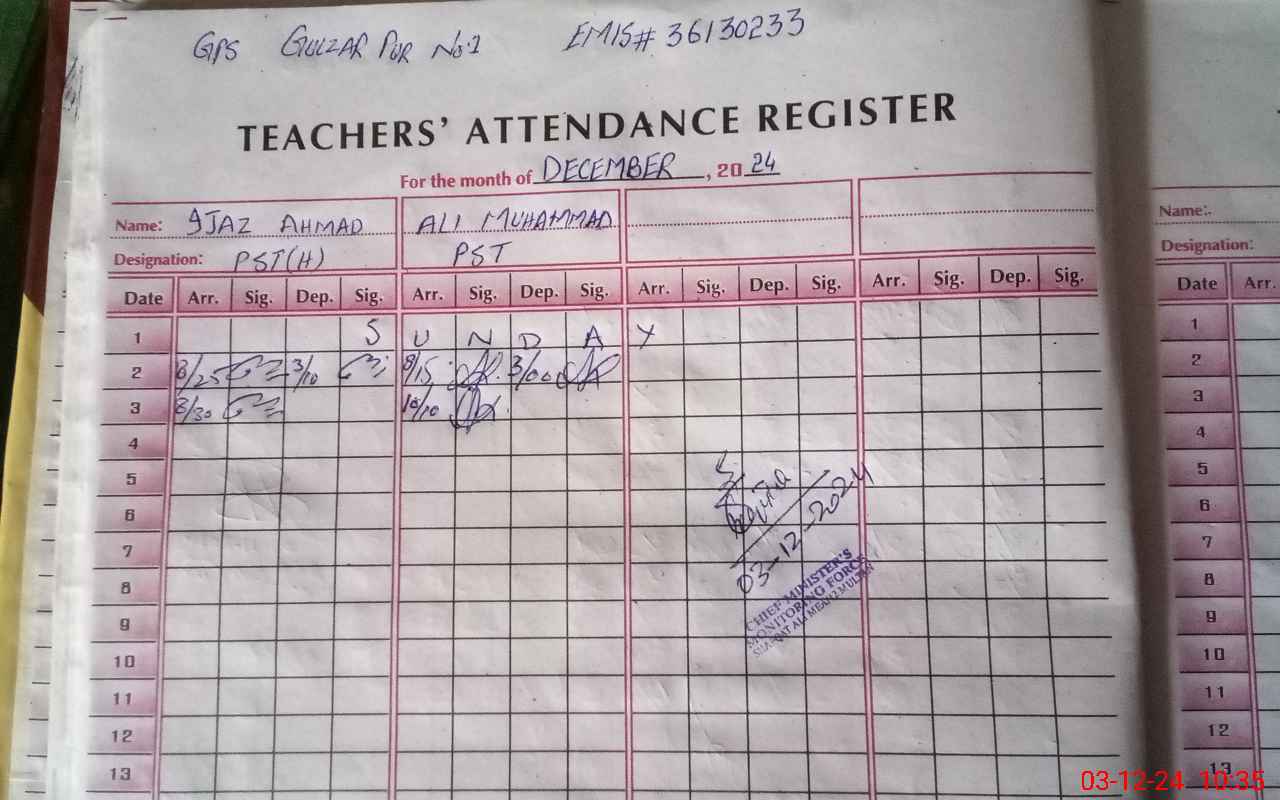 GPS GULZAR PUR No.1 EMIS# 36130233
TEACHERS' ATTENDANCE REGISTER
For the month of DECEMBER, 2024
Name: IJAZ AHMAD ALI MUHAMMAD
Designation: PST(H) PST
Date Arr. Sig. Dep. Sig. Arr. Sig. Dep. Sig. Arr. Sig. Dep. Sig. Arr. Sig. Dep. Sig.
1 S U N D A Y
2 8/25 3/10 8/15 3/00
3 8/30 10/10
4
5
6
7
8
9
10
11
12
13
03-12-2024
CHIEF MINISTER'S
MONITORING FORCE
Name:
Designation:
Date Arr.
1
2
3
4
5
6
7
8
9
10
11
12
13
03-12-24 10:35